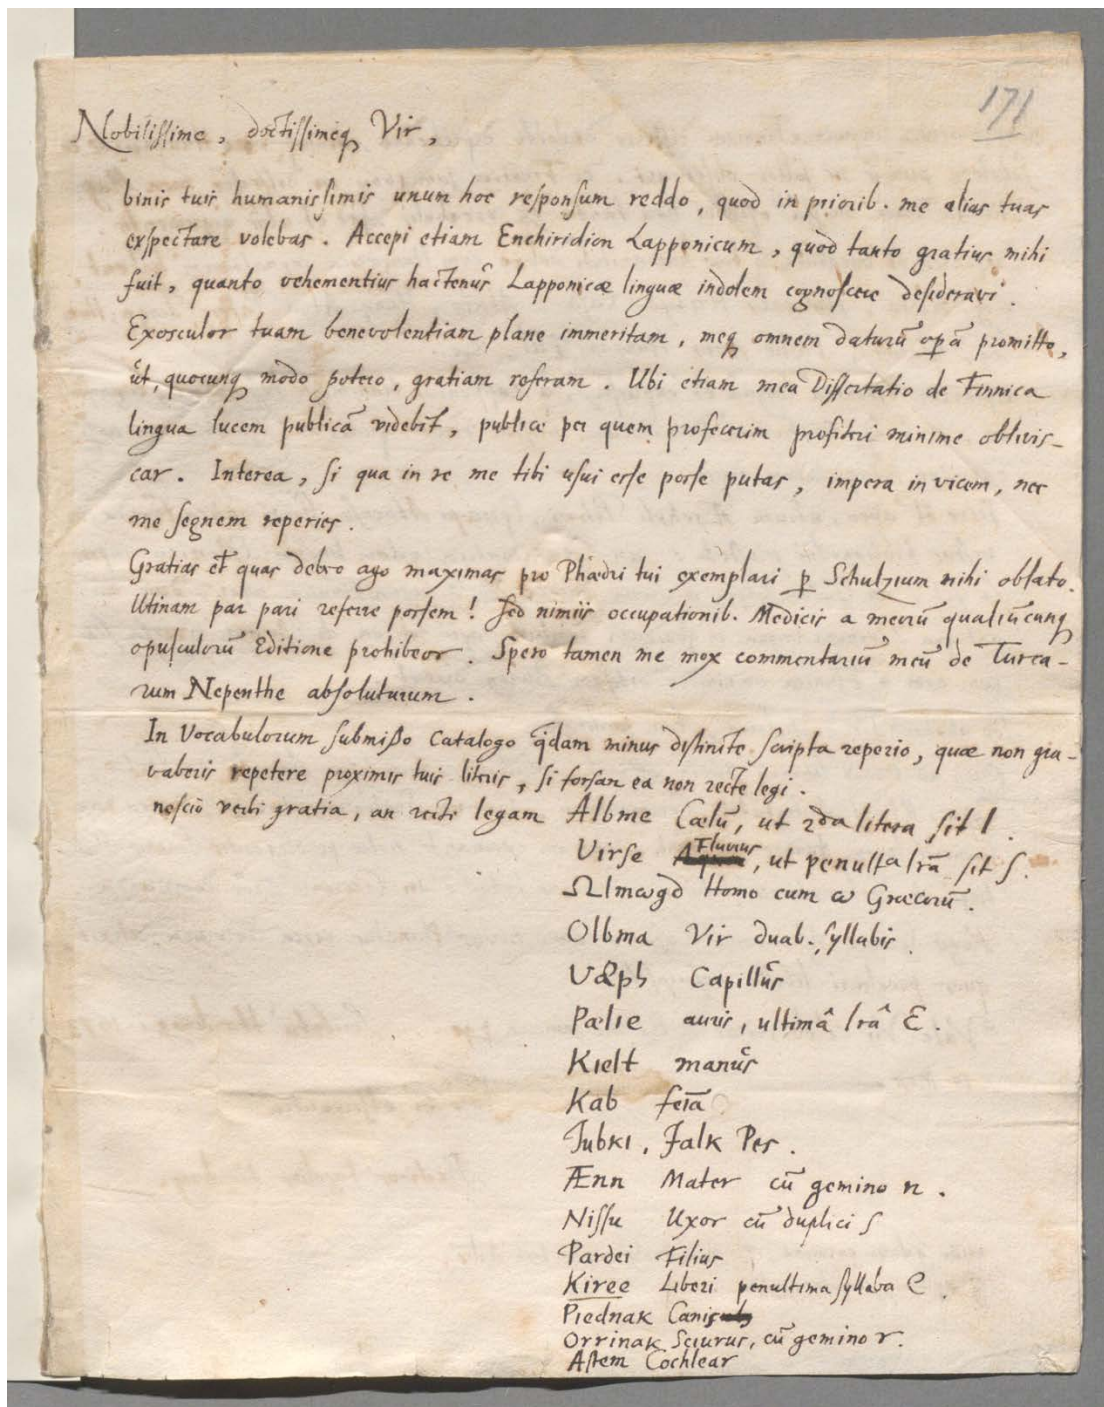 171
Nobilissime, doctissimeq Vir,
binis tuis humanissimis unum hoc responsum reddo, quod in priorib. me alias tuas
expectare volebas. Accepi etiam Enchiridion Lapponicum, quod tanto gratius mihi
fuit, quanto vehementius hactenus Lapponicæ linguæ indolem cognoscere desideravi.
Exosculor tuam benevolentiam plane immeritam, meq omnem daturū opā promitto,
ut, quocunq modo potero, gratiam referam. Ubi etiam mea Dissertatio de Finnica
lingua lucem publicā videbit, publice per quem profecerim profiteri minime oblivis-
car. Interea, si qua in re me tibi usui esse posse putas, impera in vicem, nec
me segnem reperies.
Gratias et quas debeo ago maximas pro Phædri tui exemplari p Schulzium mihi oblato.
Utinam par pari referre possem! Sed nimiis occupationib. Medicis a meorū qualiūcunq
opusculorū Editione prohibeor. Spero tamen me mox commentariū meū de Turca-
rum Nepenthe absoluturum.
In Vocabulorum submißo Catalogo q̄dam minus distincte scripta reperio, quæ non gra-
vaberis repetere proximis tuis literis, si forsan ea non recte legi.
nescio verbi gratia, an recte legam Albme Cælū, ut 2da litera sit l.
Virse Fluvius, ut penulta lrā sit s.
Ωlmωgd Homo cum ω Græcorū.
Olbma Vir duab. syllabis.
Capillus
Pælie auris, ultimâ lrâ E.
Kielt manus
Kab feīa
Jubki, Jalk Pes.
Ænn Mater cū gemino n.
Nissu Uxor cū duplici s
Pardei Filius
Kiree Liberi penultima syllaba e.
Piednak Canis
Orrinak Sciurus, cū gemino r.
Astem Cochlear